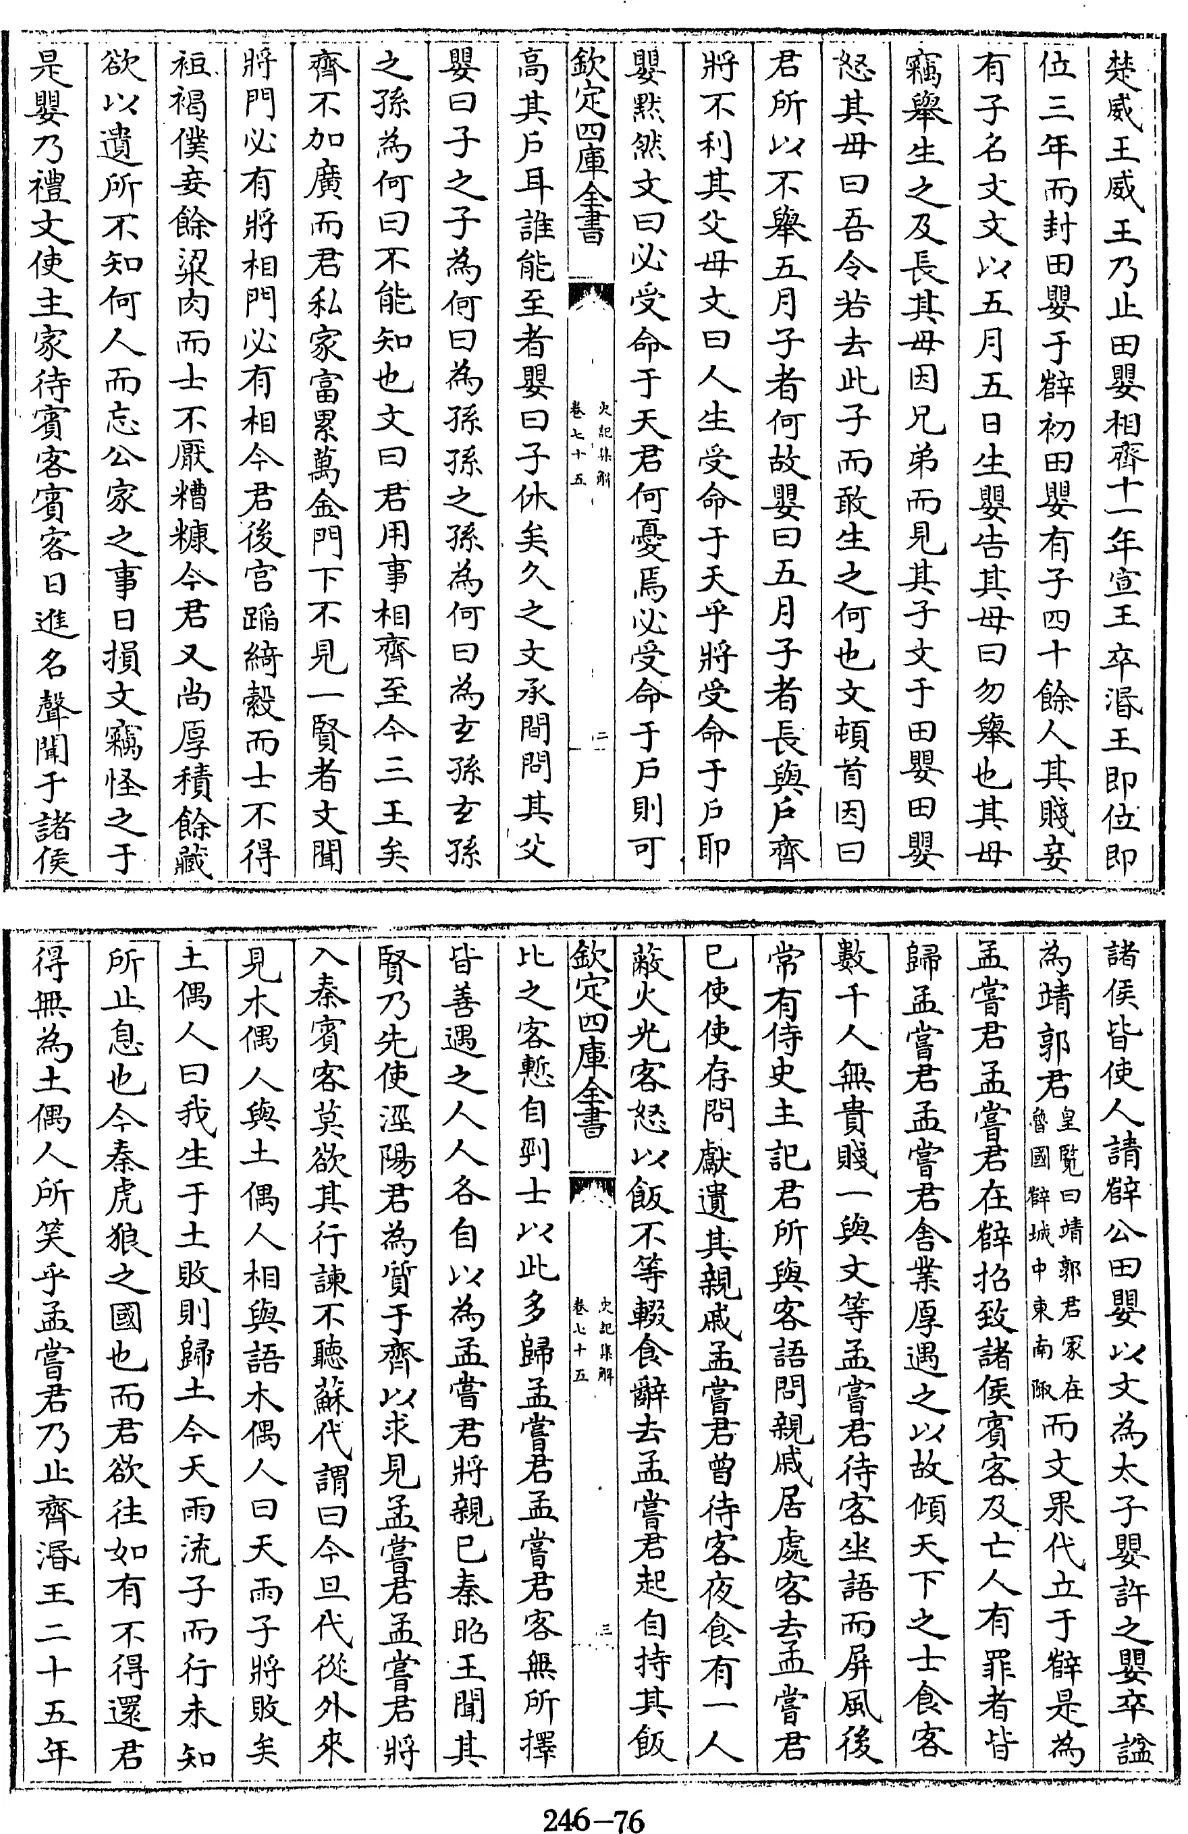 楚威王威王乃止田嬰相齊十一年宣王卒湣王即位即
位三年而封田嬰于辥初田嬰有子四十餘人其賤妾
有子名文文以五月五日生嬰告其母曰勿舉也其母
竊舉生之及長其母因兄弟而見其子文于田嬰田嬰
怒其母曰吾令若去此子而敢生之何也文頓首因曰
君所以不舉五月子者何故嬰曰五月子者長與戶齊
將不利其父母文曰人生受命于天乎將受命于戶耶
嬰黙然文曰必受命于天君何憂焉必受命于戶則可
欽定四庫全書
史記集解
卷七十五
二
高其戶耳誰能至者嬰曰子休矣久之文承間問其父
嬰曰子之子為何曰為孫孫之孫為何曰為玄孫玄孫
之孫為何曰不能知也文曰君用事相齊至今三王矣
齊不加廣而君私家富累萬金門下不見一賢者文聞
將門必有將相門必有相今君後宫蹈綺縠而士不得
裋褐僕妾餘粱肉而士不厭糟糠今君又尚厚積餘藏
欲以遺所不知何人而忘公家之事日損文竊怪之于
是嬰乃禮文使主家待賓客賓客日進名聲聞于諸侯
諸侯皆使人請辥公田嬰以文為太子嬰許之嬰卒諡
為靖郭君皇覽曰靖郭君冢在魯國辥城中東南陬而文果代立于辥是為
孟嘗君孟嘗君在辥招致諸侯賓客及亡人有罪者皆
歸孟嘗君孟嘗君舍業厚遇之以故傾天下之士食客
數千人無貴賤一與文等孟嘗君待客坐語而屏風後
常有侍史主記君所與客語問親戚居處客去孟嘗君
已使使存問獻遺其親戚孟嘗君曾待客夜食有一人
蔽火光客怒以飯不等輟食辭去孟嘗君起自持其飯
欽定四庫全書
史記集解
卷七十五
三
比之客慙自剄士以此多歸孟嘗君孟嘗君客無所擇
皆善遇之人人各自以為孟嘗君將親已秦昭王聞其
賢乃先使涇陽君為質于齊以求見孟嘗君孟嘗君將
入秦賓客莫欲其行諫不聽蘇代謂曰今旦代從外來
見木偶人與土偶人相與語木偶人曰天雨子將敗矣
土偶人曰我生于土敗則歸土今天雨流子而行未知
所止息也今秦虎狼之國也而君欲往如有不得還君
得無為土偶人所笑乎孟嘗君乃止齊湣王二十五年
246-76